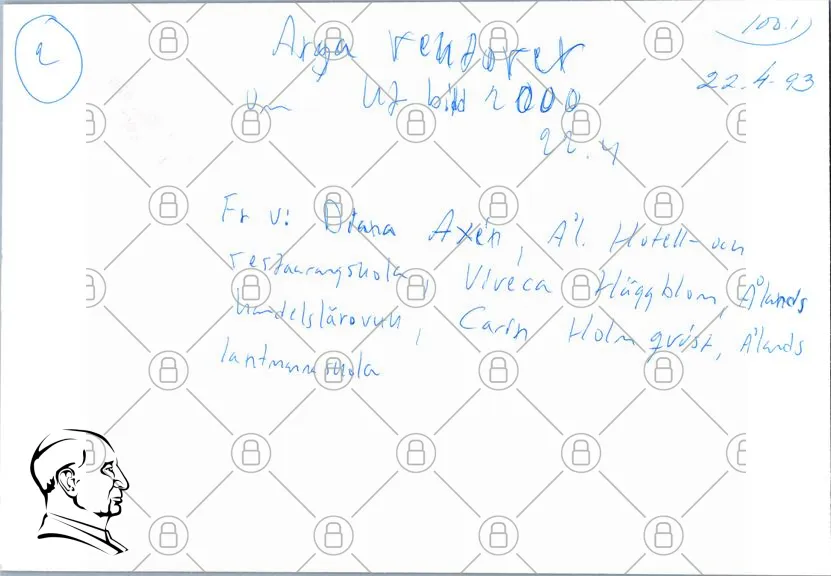 2
100.1
22.4.93
Arga rektorer
om Utbild 2000
22.4
Fr v: Diana Axén, Ål. Hotell- och
restaurangskola, Viveca Häggblom, Ålands
handelsläroverk, Carin Holmqvist, Ålands
lantmannaskola